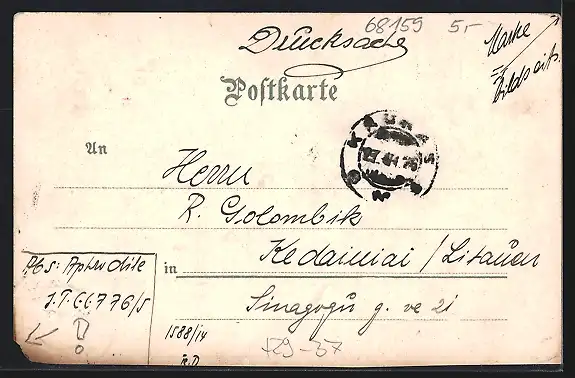 68159 5,-
Drucksache
Marke
Bildseite.
Postkarte
KAUNAS
An
Herrn
R. Golombik
in Kedainiai / Litauen
Sinagogu g-ve 21
Abs: Aphrodite
J.T.G.G. 776/5
1588/14
529-37